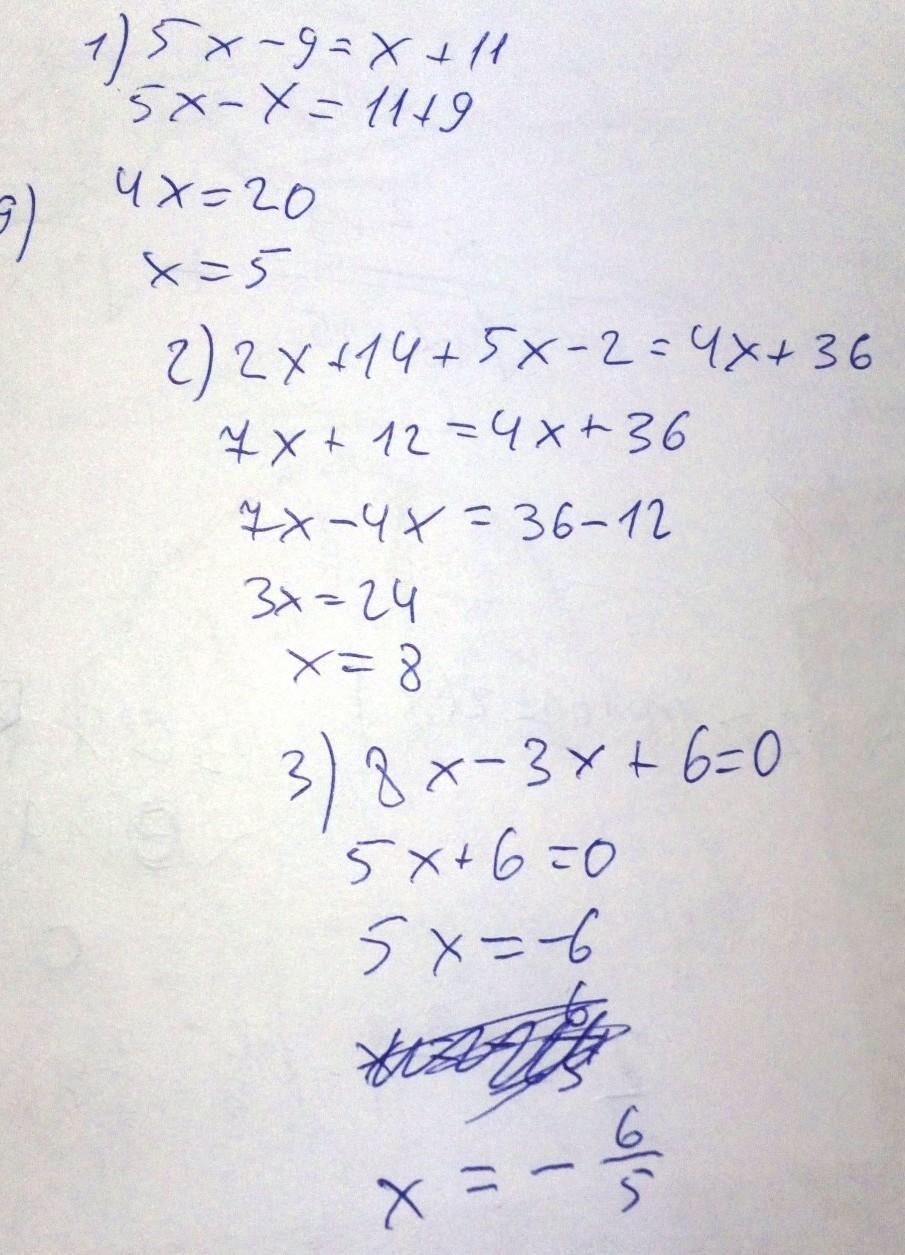 1) 5x-9=x+11
5x-x=11+9
4x=20
x=5
2) 2x+14+5x-2=4x+36
7x+12=4x+36
7x-4x=36-12
3x=24
x=8
3) 8x-3x+6=0
5x+6=0
5x=-6
x=-6/5